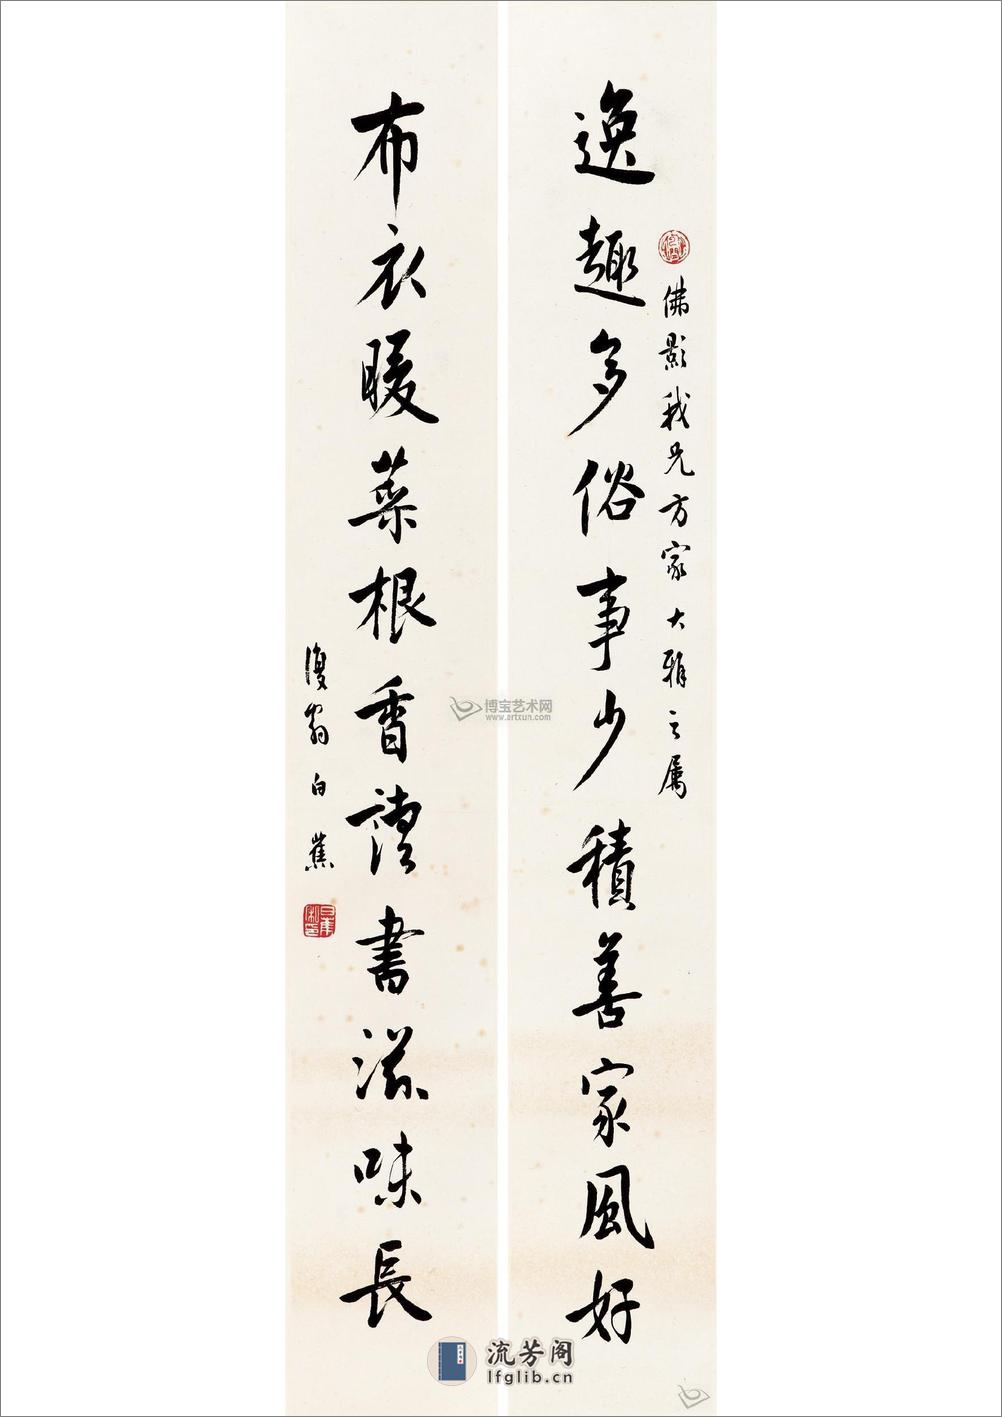 逸趣多俗事少積善家風好
佛影我兄方家大雅之屬
布衣暖菜根香讀書滋味長
復翁白蕉
博宝艺术网
www.artxun.com
流芳阁
lfglib.cn